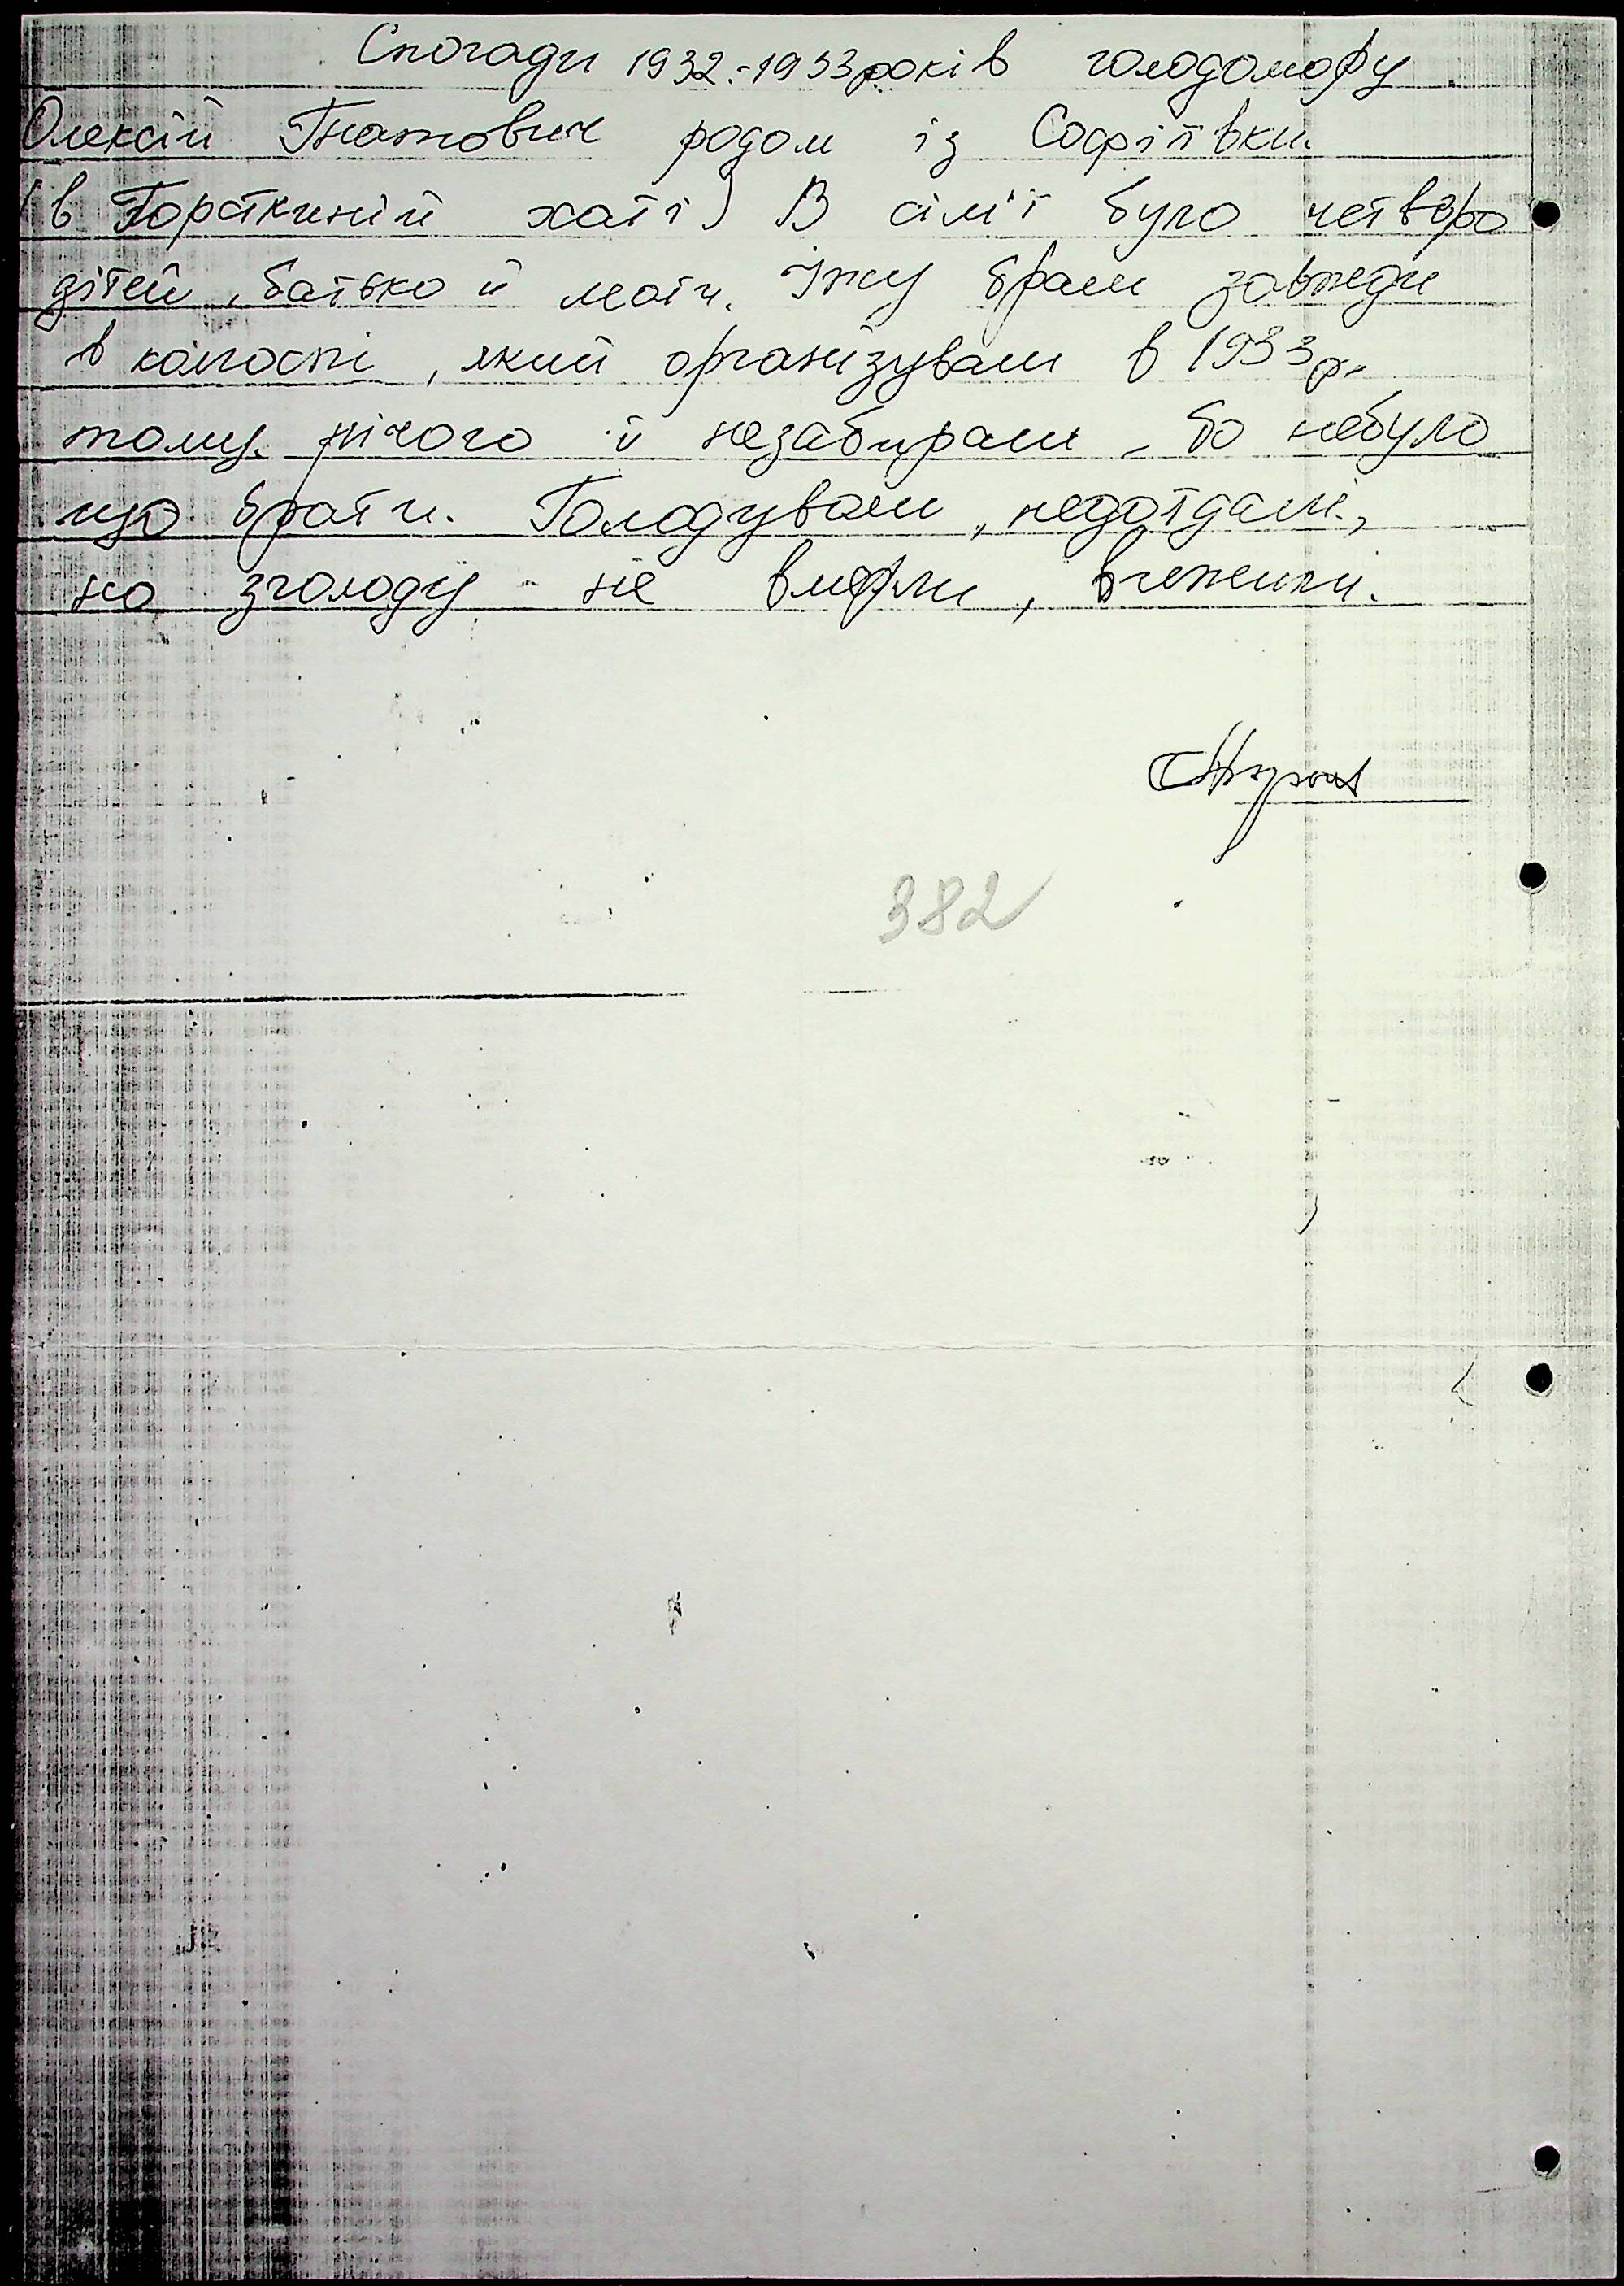 Спогади 1932-1933 років голодомору
Олексій Гнатович родом із Софіївки.
(в хаті) В сім'ї було четверо
дітей, батько й мати. Їжу брали завжди
в колгоспі, який організували в 1933 р.
тому нічого й незабирали, бо небуло
що брати. Голодували, недоїдали,
но зголоду не вмерли, вижили.
382